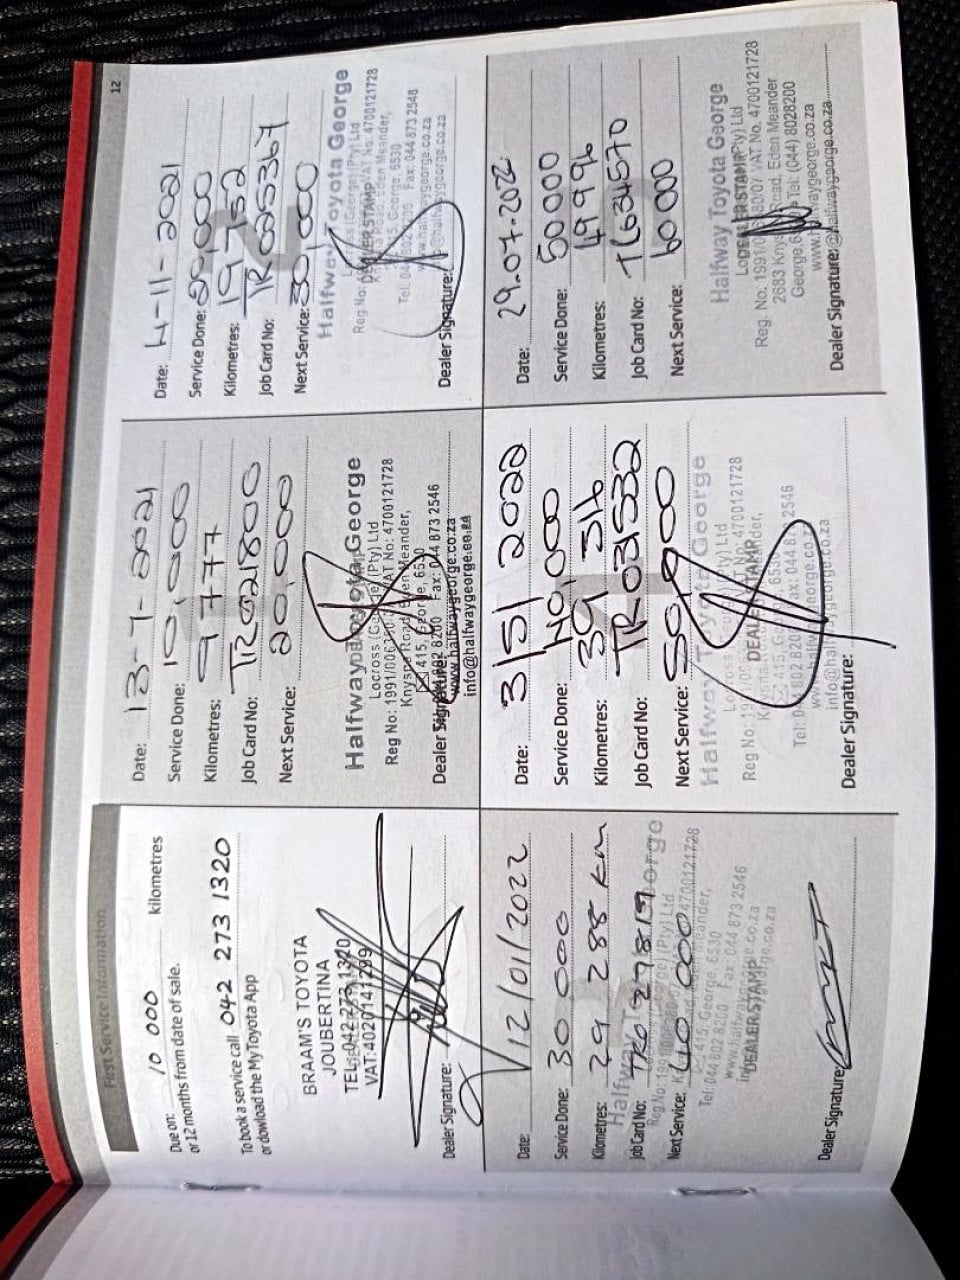 12
First Service Information
Due on: 10 000 kilometres
or 12 months from date of sale.
To book a service call 042 273 1320
or dowload the MyToyota App
BRAAM'S TOYOTA
JOUBERTINA
TEL: 042 273 1320
VAT: 4020141299
Dealer Signature:
Date: 13-7-2021
Service Done: 10,000
Kilometres: 9777
Job Card No: TR021800
Next Service: 20,000
Halfway Toyota George
Locross (George) (Pty) Ltd
Reg No: 1991/006 VAT No: 4700121728
Knysna Road, Eden Meander,
415, George, 6530
Tel: 044 802 8200 Fax: 044 873 2546
www.halfwaygeorge.co.za
info@halfwaygeorge.co.za
Dealer Signature:
Date: 4-11-2021
Service Done: 20,000
Kilometres: 19752
Job Card No: TR025367
Next Service: 30,000
Halfway Toyota George
DEALER STAMP
VAT No: 4700121728
Eden Meander,
415, George, 6530
Fax: 044 873 2546
www.halfwaygeorge.co.za
info@halfwaygeorge.co.za
Dealer Signature:
Date: 12/01/2022
Service Done: 30 000
Kilometres: 29 288 km
Job Card No:
Next Service: 40,000
Halfway Toyota George
(George) (Pty) Ltd
4700121728
415, George, 6530
Tel: 044 802 8200 Fax: 044 873 2546
www.halfwaygeorge.co.za
DEALER STAMP
Dealer Signature:
Date: 3/5/2022
Service Done: 40,000
Kilometres: 39 316
Job Card No: TR031532
Next Service: 50,000
Halfway Toyota George
(Pty) Ltd
Reg No: VAT No: 4700121728
DEALER STAMP
415, George, 6530
Tel: 044 802 8200 Fax: 044 873 2546
www.halfwaygeorge.co.za
info@halfwaygeorge.co.za
Dealer Signature:
Date: 29.07.2022
Service Done: 50 000
Kilometres: 49996
Job Card No: T634570
Next Service: 60 000
Halfway Toyota George
DEALER STAMP (Pty) Ltd
Reg. No. VAT No. 4700121728
2683 Knysna Road, Eden Meander
George, Tel: (044) 8028200
www.halfwaygeorge.co.za
@halfwaygeorge.co.za
Dealer Signature: